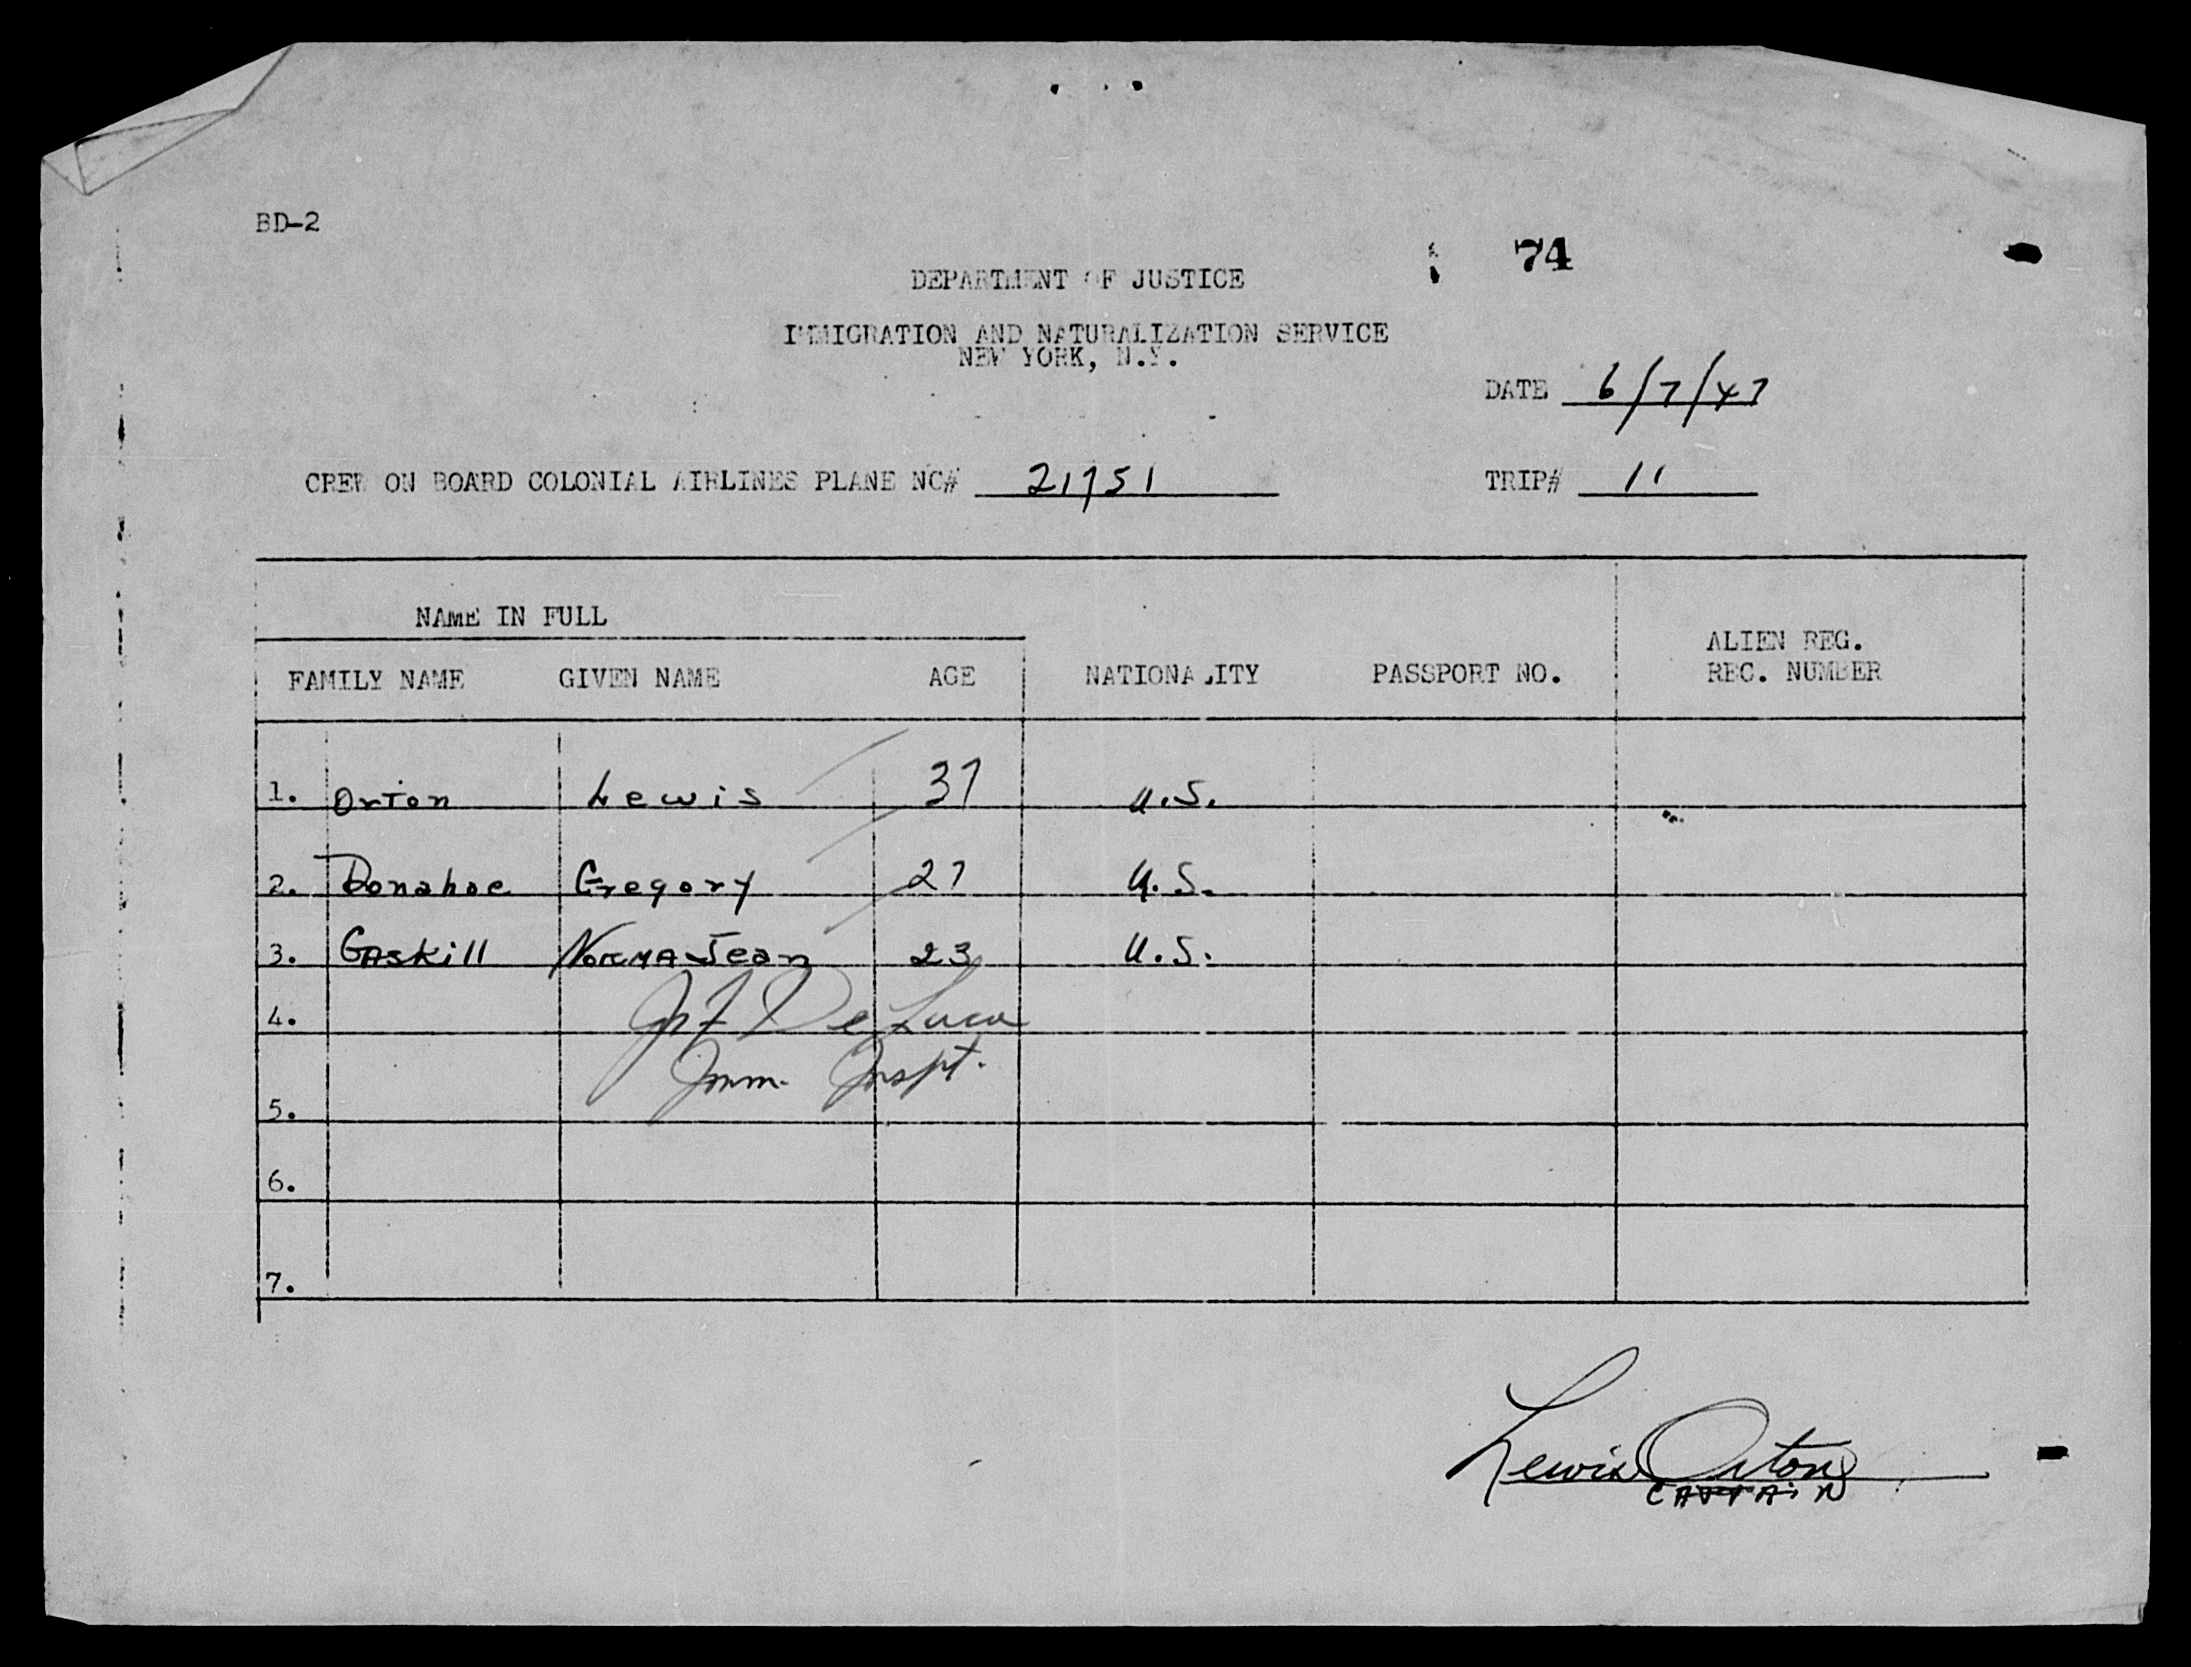 BD-2
74
DEPARTMENT OF JUSTICE
IMMIGRATION AND NATURALIZATION SERVICE
NEW YORK, N.Y.
DATE 6/7/47
CREW ON BOARD COLONIAL AIRLINES PLANE NC# 21751
TRIP# 11
NAME IN FULL
FAMILY NAME GIVEN NAME AGE NATIONALITY PASSPORT NO. ALIEN REG. REC. NUMBER
1. Orton Lewis 37 U.S.
2. Donahoe Gregory 27 U.S.
3. Gaskill Norma Jean 23 U.S.
4. De Luca
Imm. Inspt.
5.
6.
7.
Lewis Orton
CAPTAIN